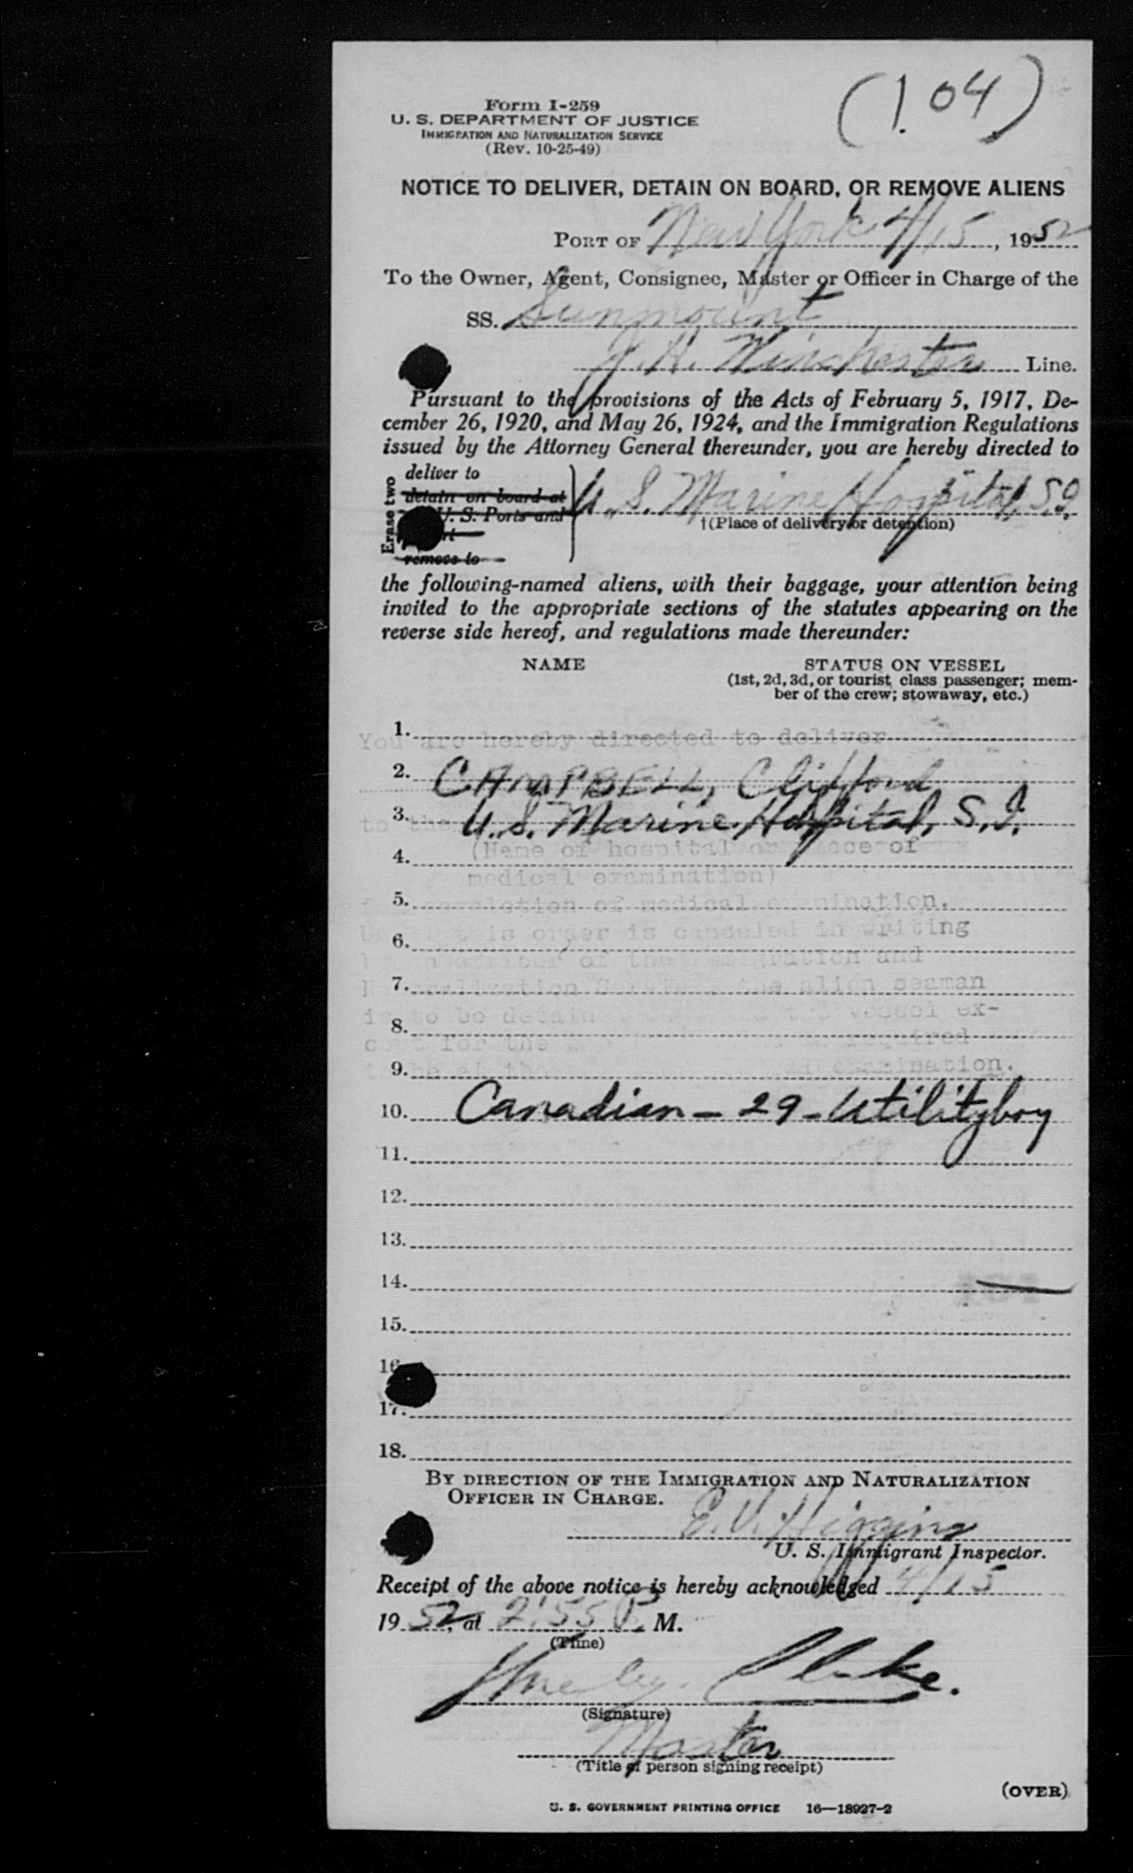 (1.04)
Form I-259
U. S. DEPARTMENT OF JUSTICE
IMMIGRATION AND NATURALIZATION SERVICE
(Rev. 10-25-49)
NOTICE TO DELIVER, DETAIN ON BOARD, OR REMOVE ALIENS
PORT OF New York 4/15, 1952
To the Owner, Agent, Consignee, Master or Officer in Charge of the
SS. Sunmount
J. H. Winchester Line.
Pursuant to the provisions of the Acts of February 5, 1917, De-
cember 26, 1920, and May 26, 1924, and the Immigration Regulations
issued by the Attorney General thereunder, you are hereby directed to
Erase two
deliver to
detain on board at
U. S. Ports and
remove to
U. S. Marine Hospital, S.I.
†(Place of delivery or detention)
the following-named aliens, with their baggage, your attention being
invited to the appropriate sections of the statutes appearing on the
reverse side hereof, and regulations made thereunder:
NAME STATUS ON VESSEL
(1st, 2d, 3d, or tourist class passenger; mem-
ber of the crew; stowaway, etc.)
1.
You are hereby directed to deliver
2. CAMPBELL, Clifford
3. U.S. Marine Hospital, S.I.
to the
(Name of hospital or place of
4.
medical examination)
5.
completion of medical examination.
Until this order is canceled in writing
6.
officer of the Immigration and
7.
Naturalization Service, the alien seaman
is to be detained the vessel ex-
8.
cept for the required
9.
to be at examination.
10. Canadian - 29 - Utilityboy
11.
12.
13.
14.
15.
16.
17.
18.
BY DIRECTION OF THE IMMIGRATION AND NATURALIZATION
OFFICER IN CHARGE.
E. V. Higgins
U. S. Immigrant Inspector.
Receipt of the above notice is hereby acknowledged 4/15
1952, at 2:55 P. M.
(Time)
(Signature)
Master
(Title of person signing receipt)
(OVER)
U. S. GOVERNMENT PRINTING OFFICE 16—18927-2